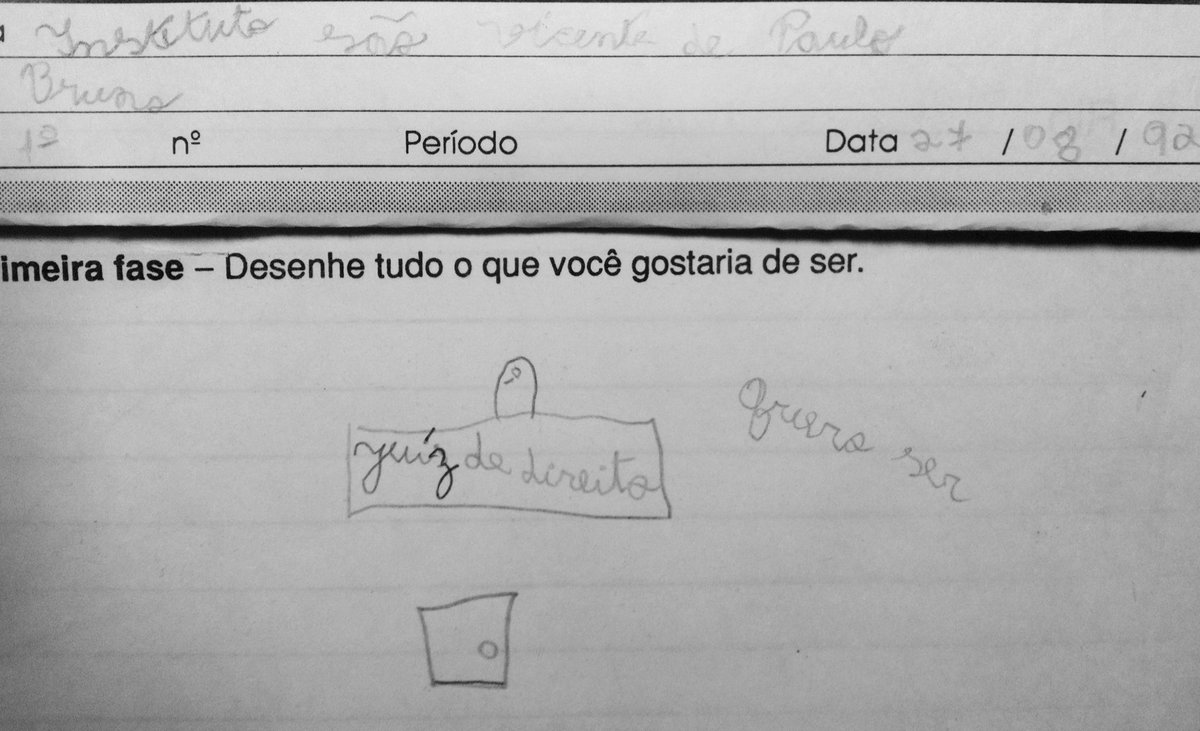 Instituto são vicente de Paulo
Bruno
1º nº Período Data 27 / 08 / 92
imeira fase – Desenhe tudo o que você gostaria de ser.
juíz de direito
quero ser